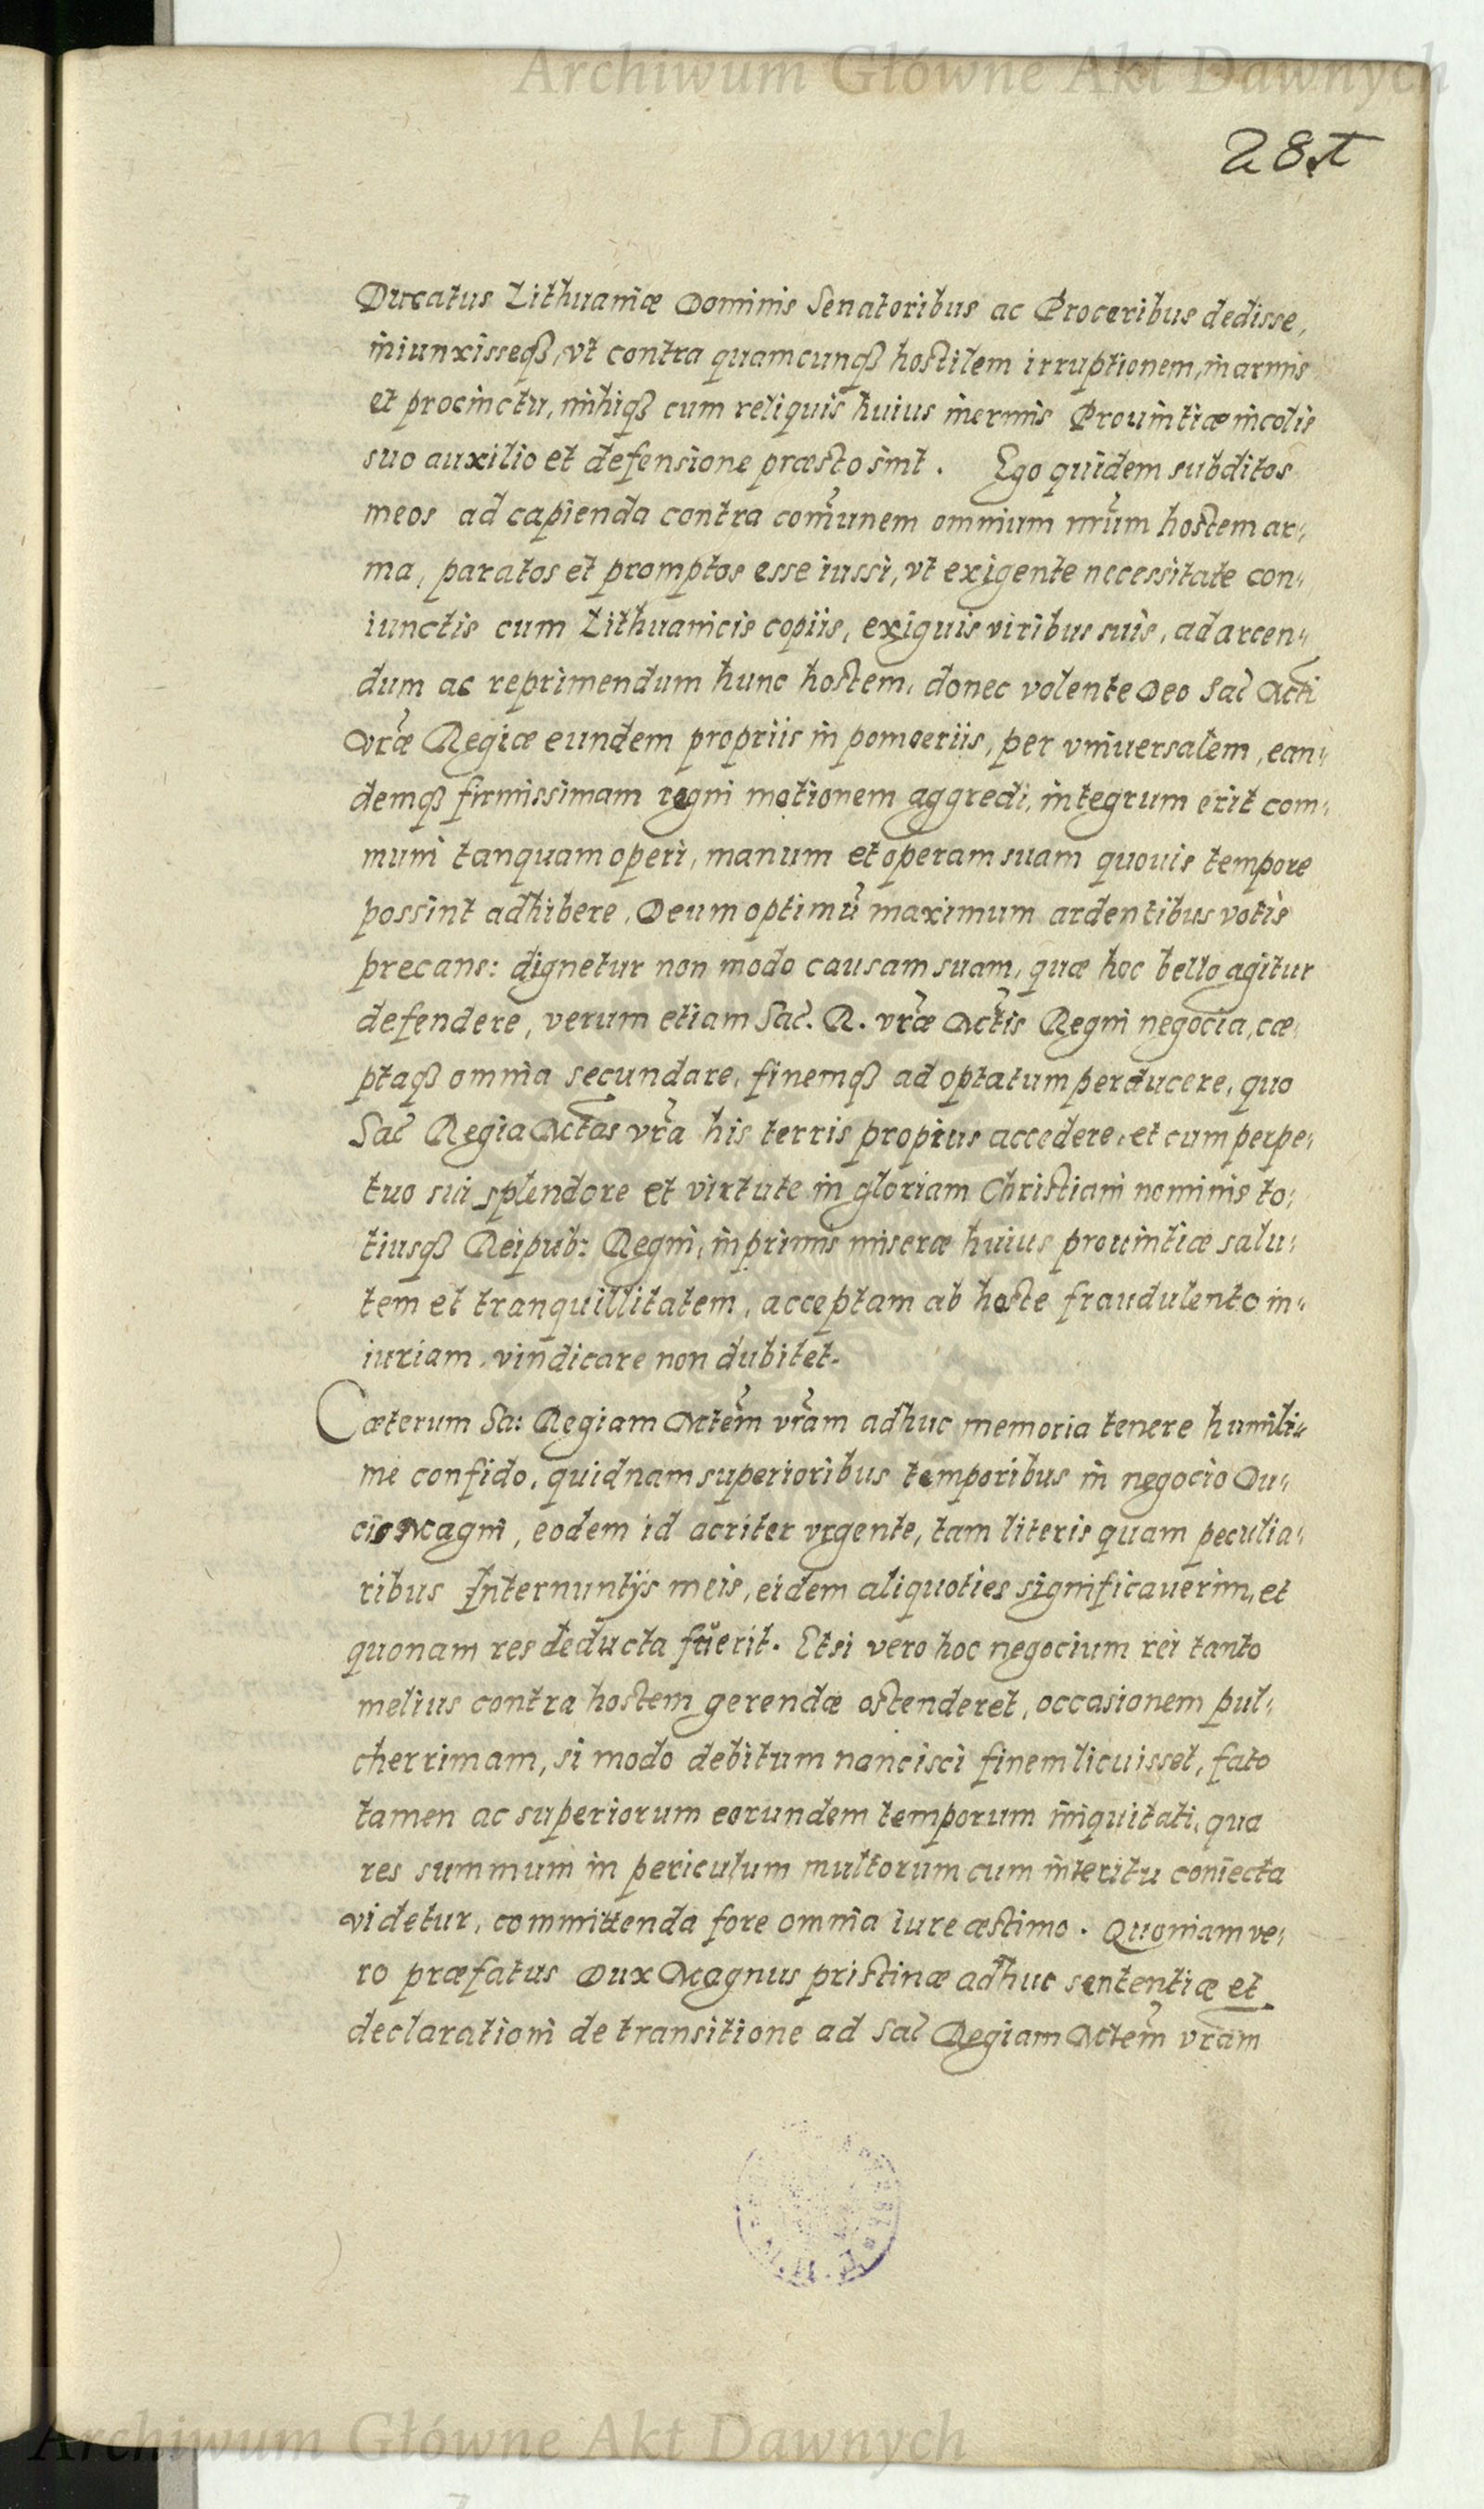 Archiwum Główne Akt Dawnych
28
Ducatus Lithuaniæ Dominis Senatoribus ac Proceribus dedisse,
iniunxisseqȝ, vt contra quamcunqȝ hostilem irruptionem, in armis
et procinctu, mihiqȝ cum reliquis huius inermis Prouintiæ incolis
suo auxilio et defensione præsto sint. Ego quidem subditos
meos ad capienda contra com̃unem omnium nr̃um hostem ar-
ma, paratos et promptos esse iussi, vt exigente necessitate con-
iunctis cum Lithuanicis copiis, exiguis viribus suis, ad arcen-
dum ac reprimendum hunc hostem, donec volente Deo Sac̃ Mti
vr̃æ Regiæ eundem propriis in pomoeriis, per vniuersalem, ean-
demqȝ firmissimam regni motionem aggredi, integrum erit com-
muni tanquam operi, manum et operam suam quouis tempore
possint adhibere, Deum optimũ maximum ardentibus votis
precans: dignetur non modo causam suam, quæ hoc bello agitur
defendere, verum etiam Sac̃. R. vr̃æ Mtis Regni negocia, cæ-
ptaqȝ omnia secundare, finemqȝ ad optatum perducere, quo
Sac̃ Regia Mtas vr̃a his terris propius accedere, et cum perpe-
tuo sui splendore et virtute in gloriam Christiani nominis to-
tiusqȝ Reipub: Regni, inprimis miseræ huius prouintiæ salu-
tem et tranquillitatem, acceptam ab hoste fraudulento in-
iuriam, vindicare non dubitet.
Cæterum Sa: Regiam Mtem̃ vr̃am adhuc memoria tenere humili-
me confido, quidnam superioribus temporibus in negocio Du-
cis Magni, eodem id acriter vrgente, tam literis quam peculia-
ribus Internuntijs meis, eidem aliquoties significauerim, et
quonam res deducta fuerit. Etsi vero hoc negocium rei tanto
melius contra hostem gerendæ ostenderet, occasionem pul-
cherrimam, si modo debitum nancisci finem licuisset, fato
tamen ac superiorum eorundem temporum iniquitati, qua
res summum in periculum multorum cum interitu coniecta
videtur, committenda fore omnia iure æstimo. Quoniam ve-
ro præfatus Dux Magnus pristinæ adhuc sententiæ et
declarationi de transitione ad Sac̃ Regiam Mtem̃ vr̃am
Archiwum Główne Akt Dawnych